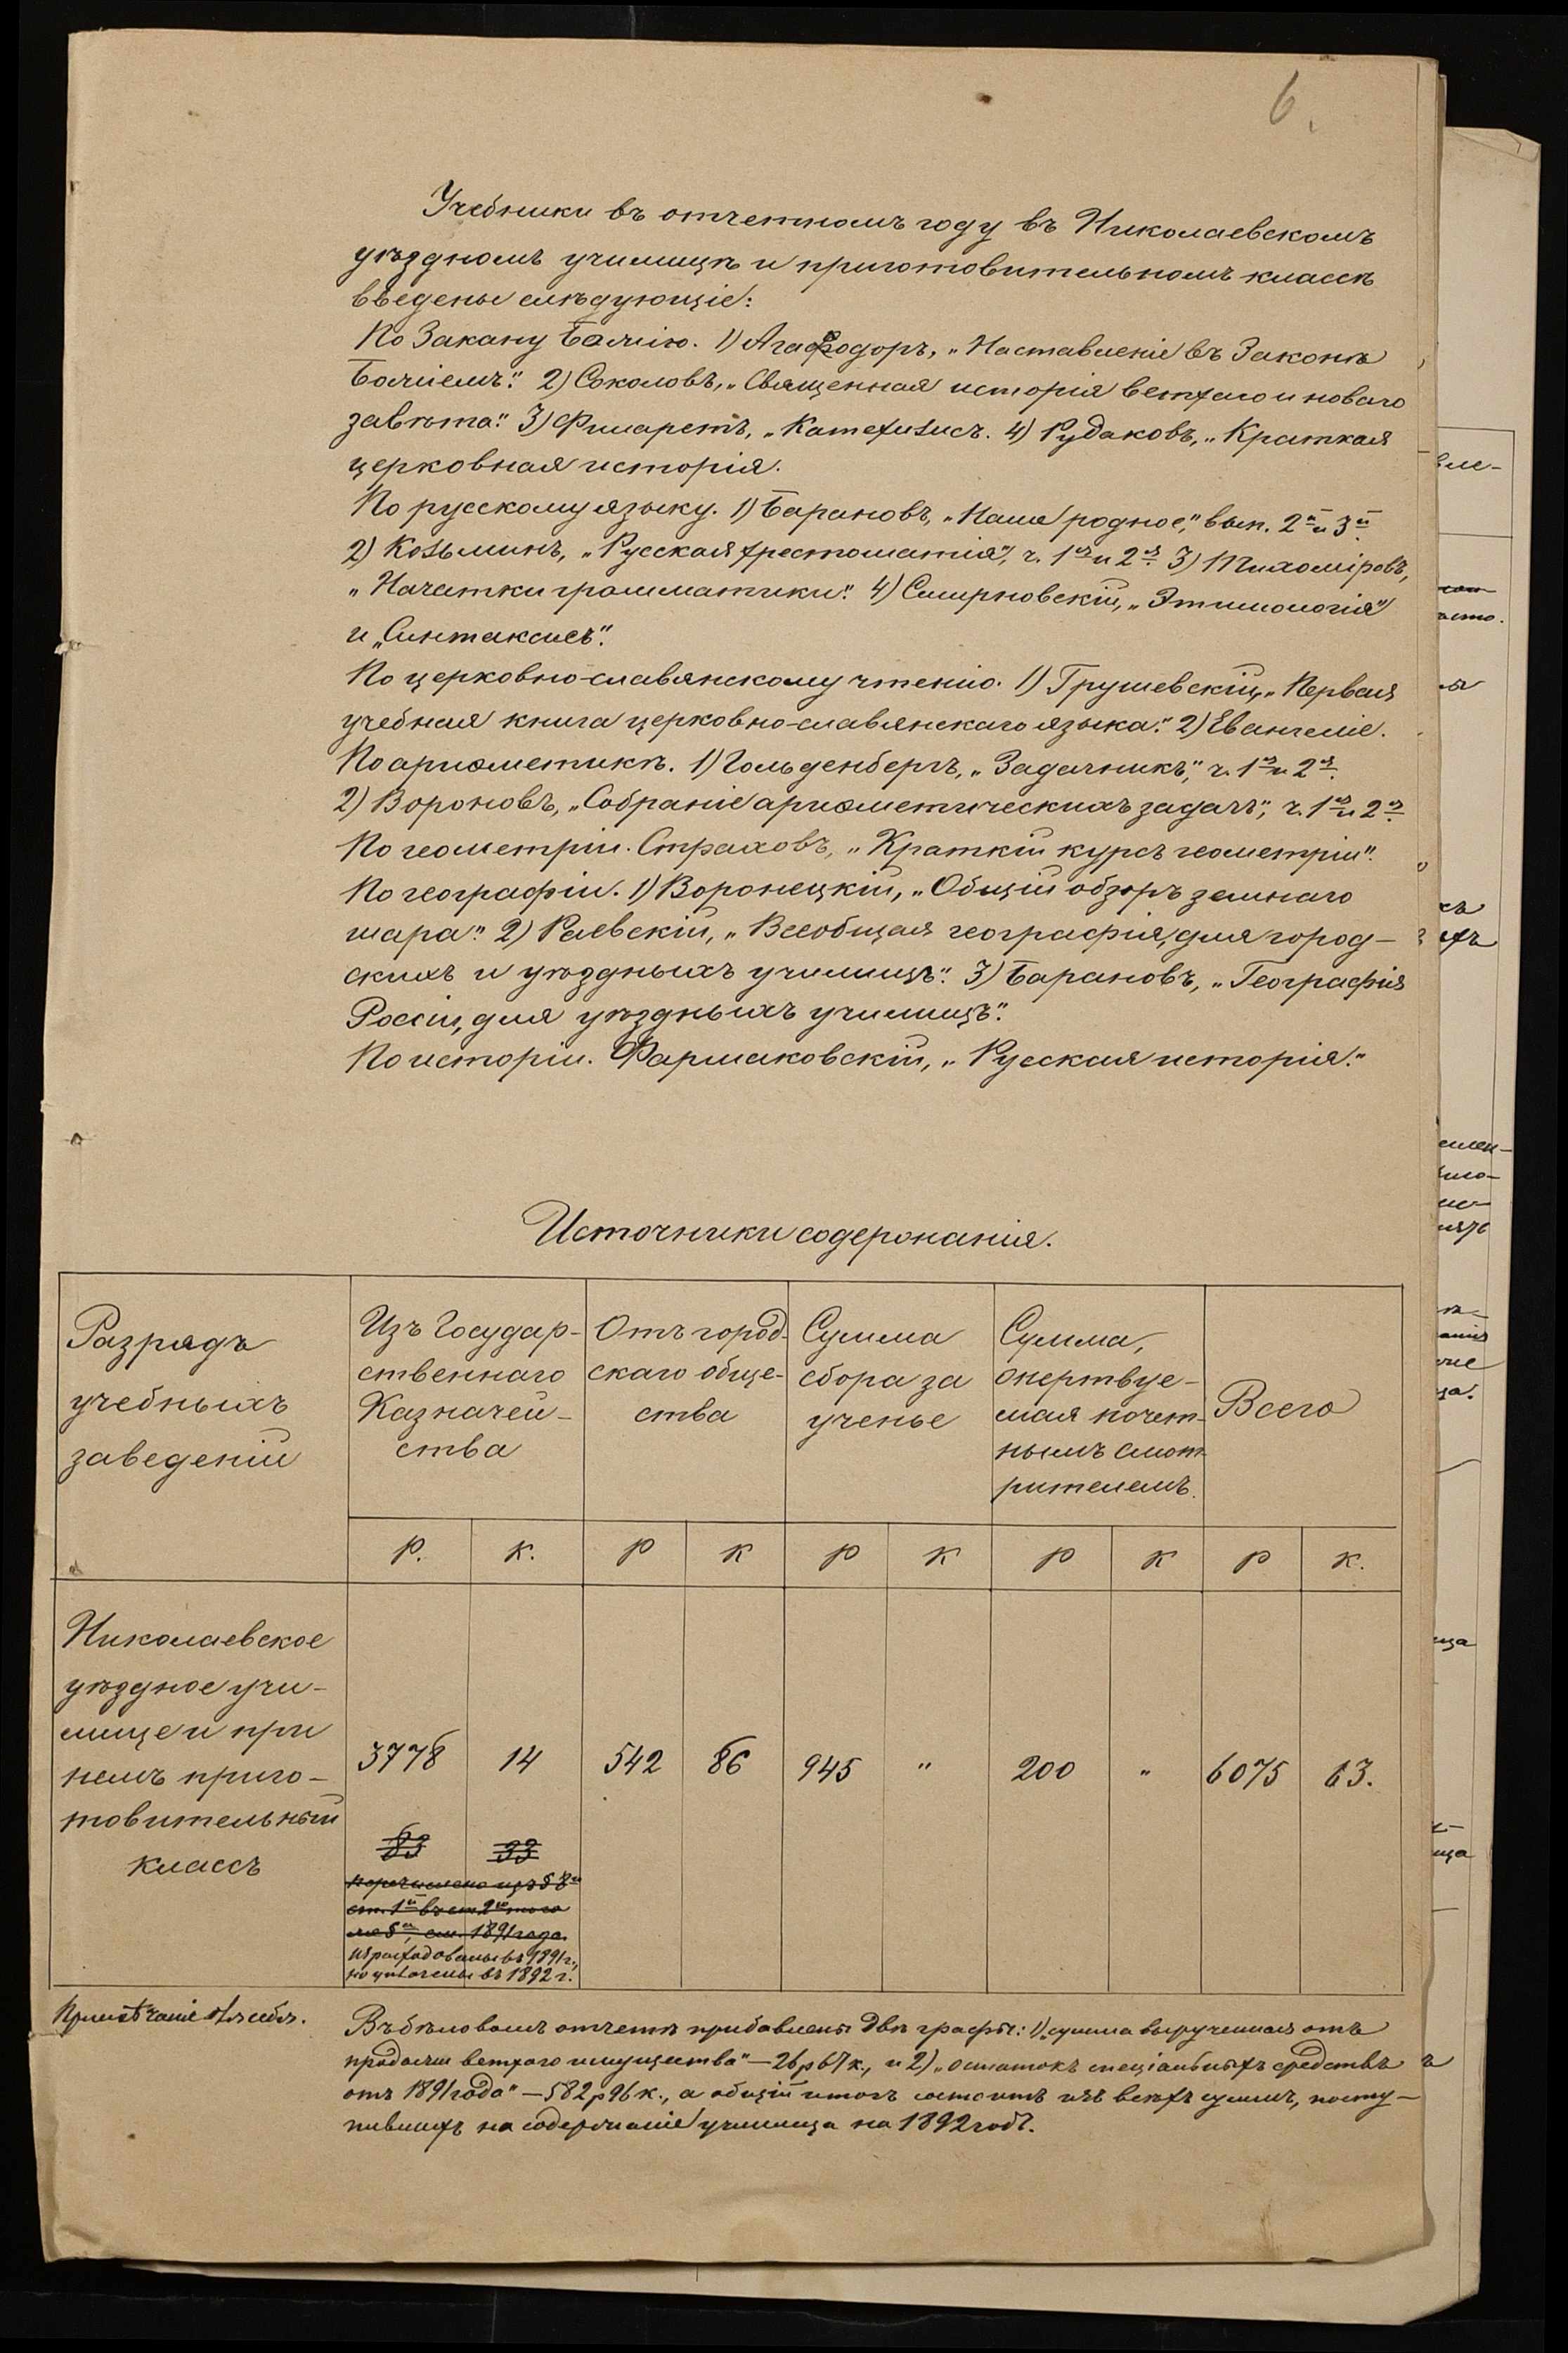 6.
Учебники въ отчетномъ году въ Николаевскомъ
уѣздномъ училищѣ и приготовительномъ классѣ
введены слѣдующіе:
По Закану Божію. 1) Агафодоръ, „Наставленіе въ Законѣ
Божіемъ". 2) Соколовъ, „Священная исторія ветхаго и новаго
завѣта". 3) Филаретъ, „Катехизисъ. 4) Рудаковъ, „Краткая
церковная исторія.
По русскому языку. 1) Барановъ, „Наше родное", вып. 2й и 3й.
2) Козьминъ, „Русская хрестоматія", ч. 1ая и 2ая. 3) Тихоміровъ,
„Начатки грамматики". 4) Смирновскій, „Этимологія"
и „Синтаксисъ".
По церковно-славянскому чтенію. 1) Грушевскій, „Первая
учебная книга церковно-славянскаго языка". 2) Евангеліе.
По ариѳметикѣ. 1) Гольденбергъ, „Задачникъ", ч. 1ая и 2ая.
2) Вороновъ, „Собраніе ариѳметическихъ задачъ", ч. 1ая и 2ая.
По геометріи. Страховъ, „Краткій курсъ геометріи".
По географіи. 1) Воронецкій, „Общій обзоръ земнаго
шара". 2) Раевскій, „Всеобщая географія, для город-
скихъ и уѣздныхъ училищъ". 3) Барановъ, „Географія
Россіи, для уѣздныхъ училищъ".
По исторіи. Фармаковскій, „Русская исторія."
Источники содержанія.
Разрядъ
учебныхъ
заведеній
Изъ Государ-
ственнаго
Казначей-
ства
Отъ город-
скаго обще-
ства
Сумма
сбора за
ученье
Сумма,
жертвуе-
мая почет-
нымъ смот-
рителемъ.
Всего
р. к. р к р к р к р к.
Николаевское
уѣздное учи-
лище и при
немъ приго-
товительный
классъ
3778 14 542 86 945 " 200 " 6075 63.
83 33
перечислено изъ § 8й
ст. 1й въ ст. 2ю того
же §а, см. 1891 года.
израсходованы въ 1891 г.,
но уплачены въ 1892 г.
Примѣчаніе для себя.
Въ бѣловомъ отчетѣ прибавлены двѣ графы: 1) „сумма вырученная отъ
продажи ветхаго имущества" — 26 р 67 к., и 2) „остатокъ спеціальныхъ средствъ
отъ 1891 года" — 582 р 96 к., а общій итогъ состоитъ изъ всѣхъ суммъ, посту-
пившихъ на содержаніе училища на 1892 годъ.